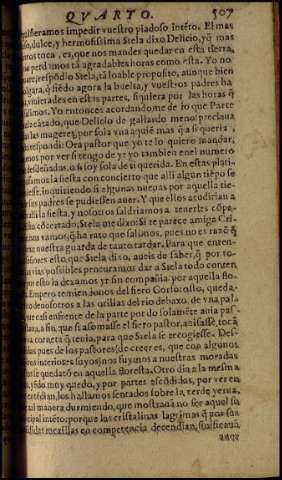 QVARTO. 307
quisieramos impedir vuestro piadoso intẽto. El mas
dulce, y hermosissima Stela dixo Delicio, yo mas
toca, es, que nos mandes quedar en esta tierra,
perdimos tã agradables horas como esta. Yo no
respõdio Stela, tã loable proposito, aunque bien
siẽdo agora la buelta, y vuestros padres ha
violerades en estas partes, si quiera por las horas q̃
Yo entonces acordandome de lo que Parte
cãtado, que Delicio de gallardo meno preciaua
las mugeres, por sola vna aquiẽ mas q̃ a si queria,
respondi: Ora pastor que yo te lo quiero mandar,
por ver si tengo de yr yo tambien en el numero
desdeñadas, o si soy sola de ti querida. En estas plati
la siesta con concierto que alli algun tiẽpo se
inquiriendo si algunas nueuas por aquella tie
padres se pudiessen auer. Y que ellos acudirian a
alli la siesta, y nosotros saldriamos a tenerles cõpa
cõcertado, Stela me dixo: Si te parece amiga Cri
vamos, q̃ ha rato que salimos, pues no es razõ q̃
nuestra guarda de tanto tardar. Para que enten
esto, que Stela dixo, aueis de saber, q̃ por to
vias possibles pencuramos dar a Stela todo conten
esso la dexamos yr sin compañia por aquella flo
Empero temien donos del fiero Gorforosto, queda
de nosotros a las orillas del rio debaxo de vna pala
que esta enfrente de la parte por do solamẽte auia pas
a fin, que si asomasse el fiero pastor, auisasse, tocã
corneta q̃ tenia, para que Stela se recogiesse. Des
pues de los pastores (de creer es, que con algunos
interiores suyos) nos fuymos a nuestras moradas
se quedarõ en aquella floresta. Otro dia a la mesma
yẽdo muy quedo, y por partes escõdidas, por ver en
entẽdian, los hallamos sentados sobre la verde yerua,
tal manera durmiendo, que mostrauã no ser aquel su
principal intẽto: porque las cristalinas lagrimas q̃ por sus
mexillas en competencia decendian, sinificaua